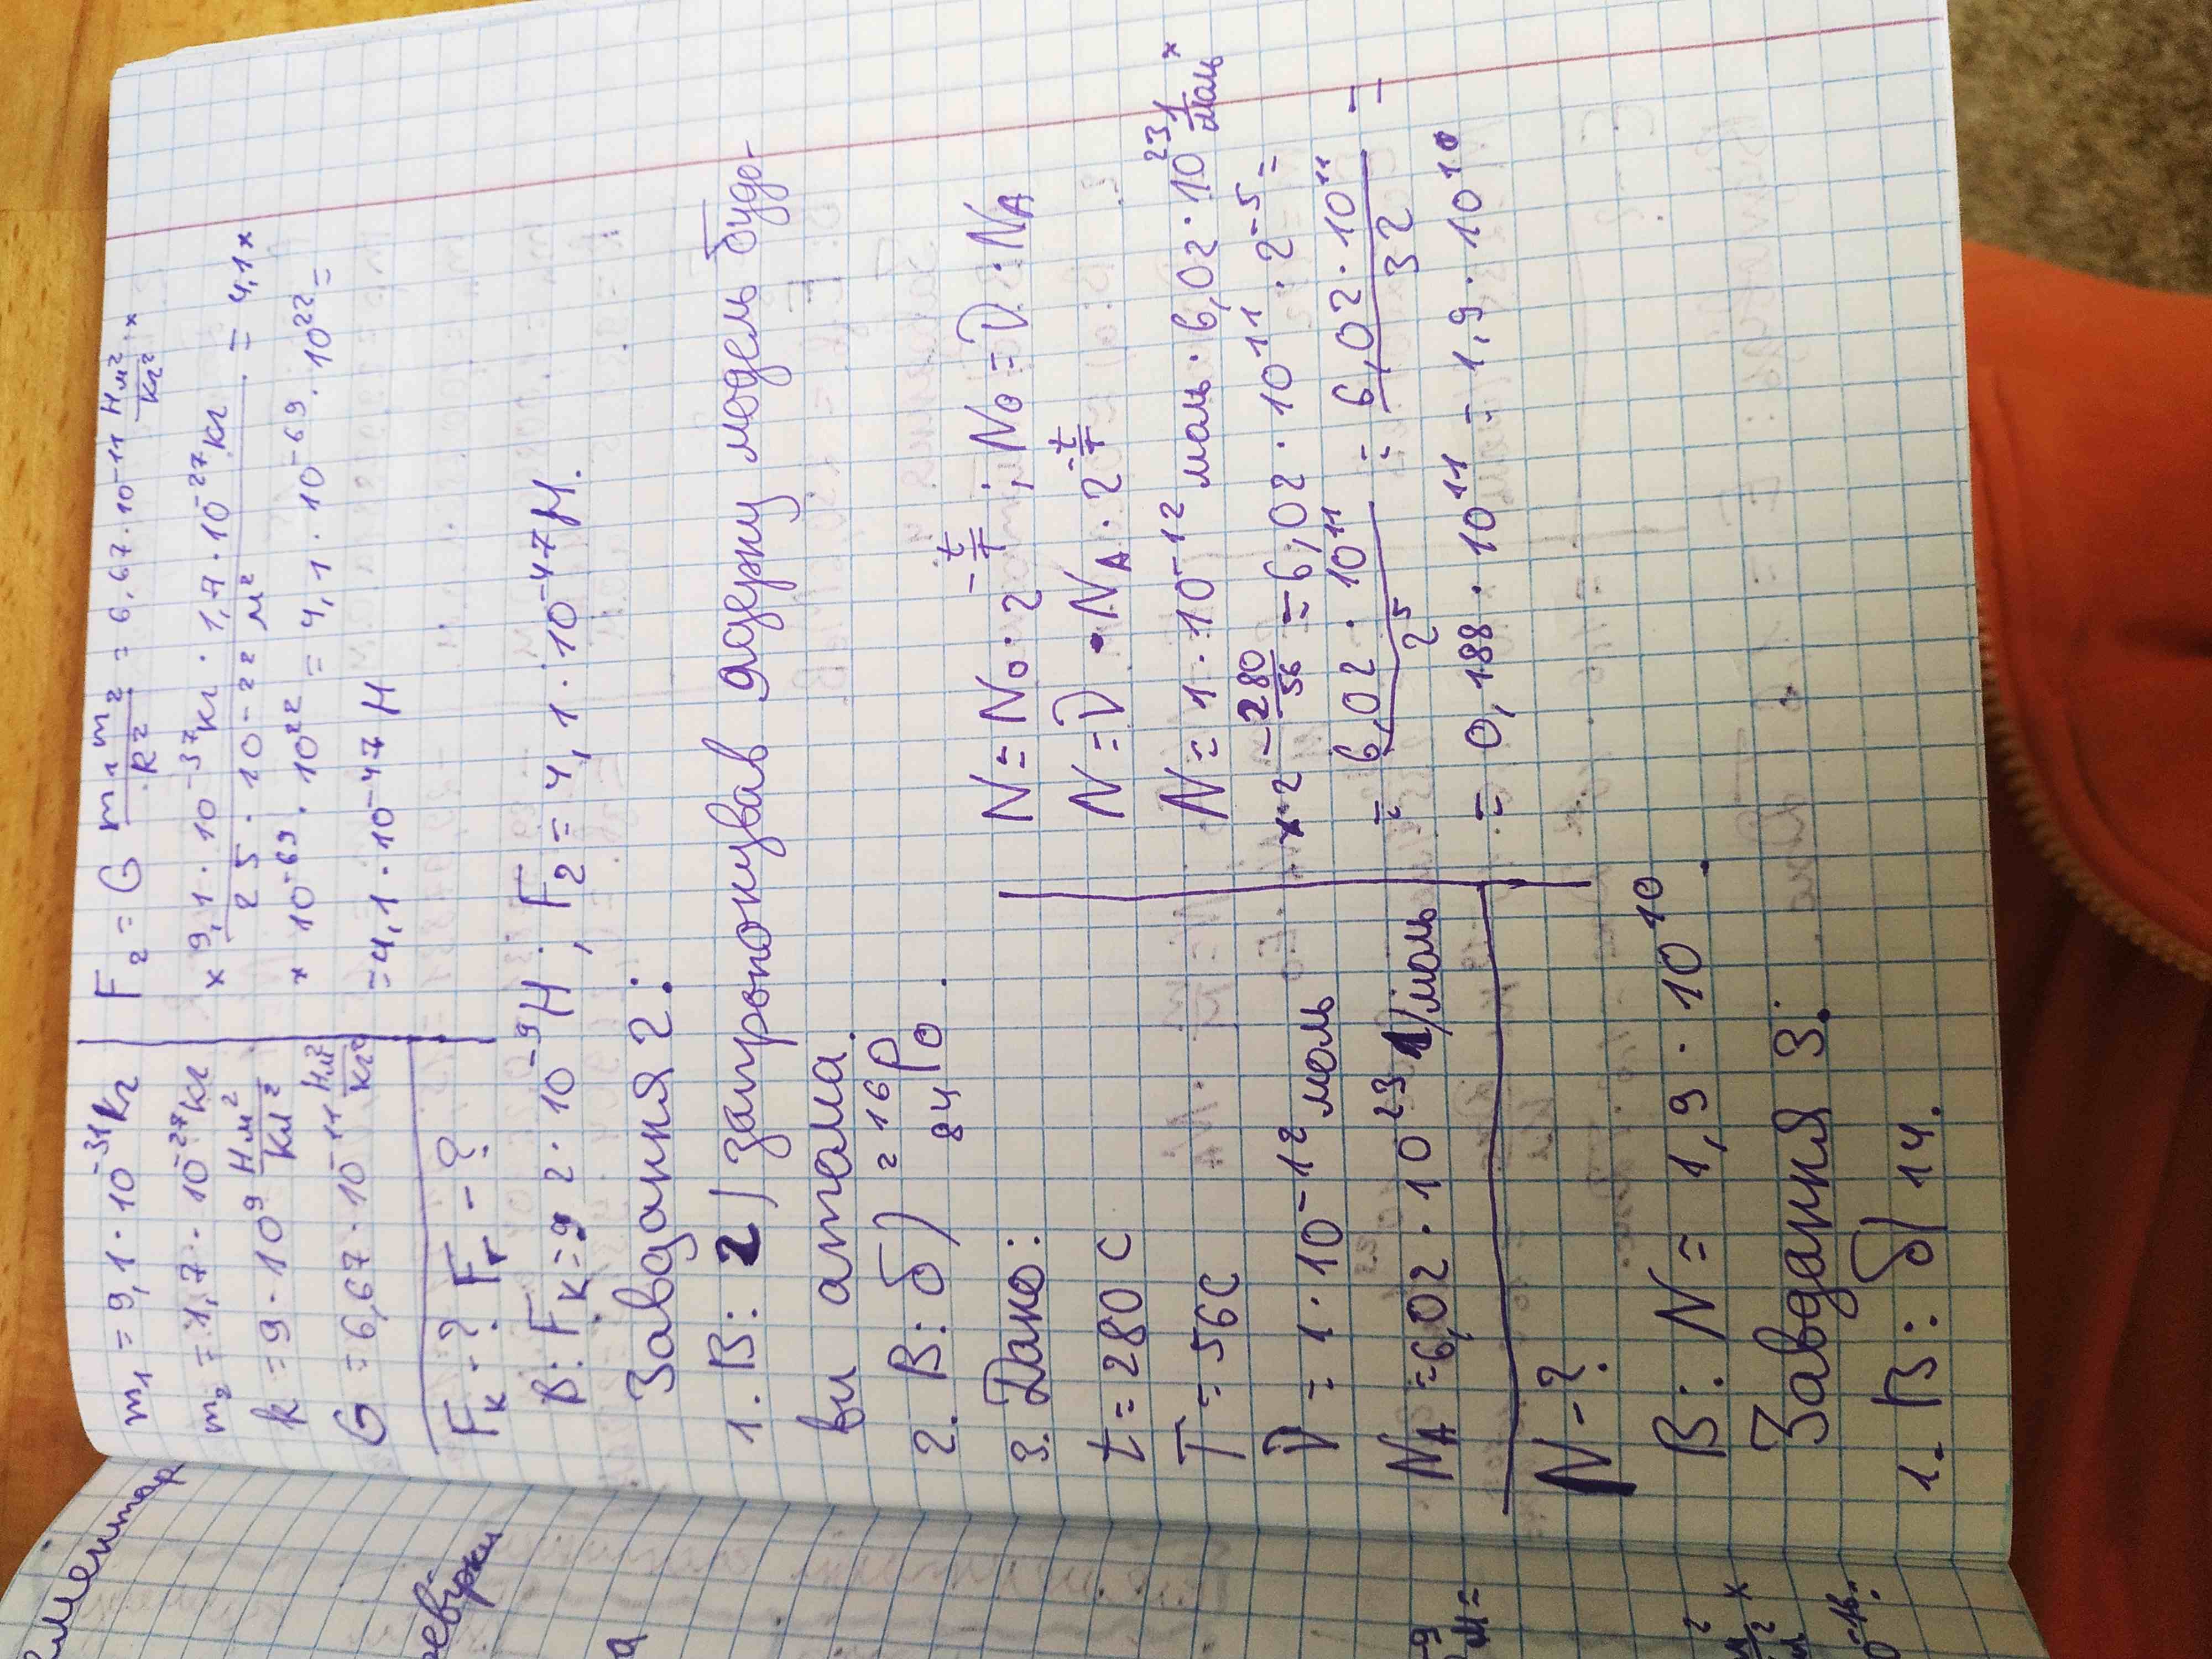 m₁ = 9,1 · 10⁻³¹ кг
m₂ = 1,7 · 10⁻²⁷ кг
k = 9 · 10⁹ Н·м²/Кл²
G = 6,67 · 10⁻¹¹ Н·м²/кг²
Fк - ? Fг - ?
F₂ = G m₁ m₂/R² = 6,67 · 10⁻¹¹ Нм²/кг² ×
× 9,1 · 10⁻³⁷кг · 1,7 · 10⁻²⁷кг/25 · 10⁻²² м² = 4,1 ×
× 10⁻⁶⁹ · 10²² = 4,1 · 10⁻⁶⁹ · 10²² =
= 4,1 · 10⁻⁴⁷ Н
В: Fк = 9 2 · 10⁻⁹ Н ; F₂ = 4,1 · 10⁻⁴⁷ Н.
Завдання 2:
1. В: 2) запропонував ядерну модель будо-
ви атома.
2. В: б) ²¹⁶₈₄Po.
3. Дано:
t = 280 С
T = 56 С
ν = 1 · 10⁻¹² моль
N_A = 6,02 · 10²³ 1/моль
N - ?
N = N₀ · 2^(-t/T) ; N₀ = ν · N_A
N = ν · N_A · 2^(-t/T)
N = 1 · 10⁻¹² моль · 6,02 · 10²³ 1/моль ×
× 2^(-280/56) = 6,02 · 10¹¹ · 2⁻⁵ =
= 6,02 · 10¹¹/2⁵ = 6,02 · 10¹¹/32 =
= 0,188 · 10¹¹ = 1,9 · 10¹⁰
В: N = 1,9 · 10¹⁰.
Завдання 3:
1. В: б) 14.